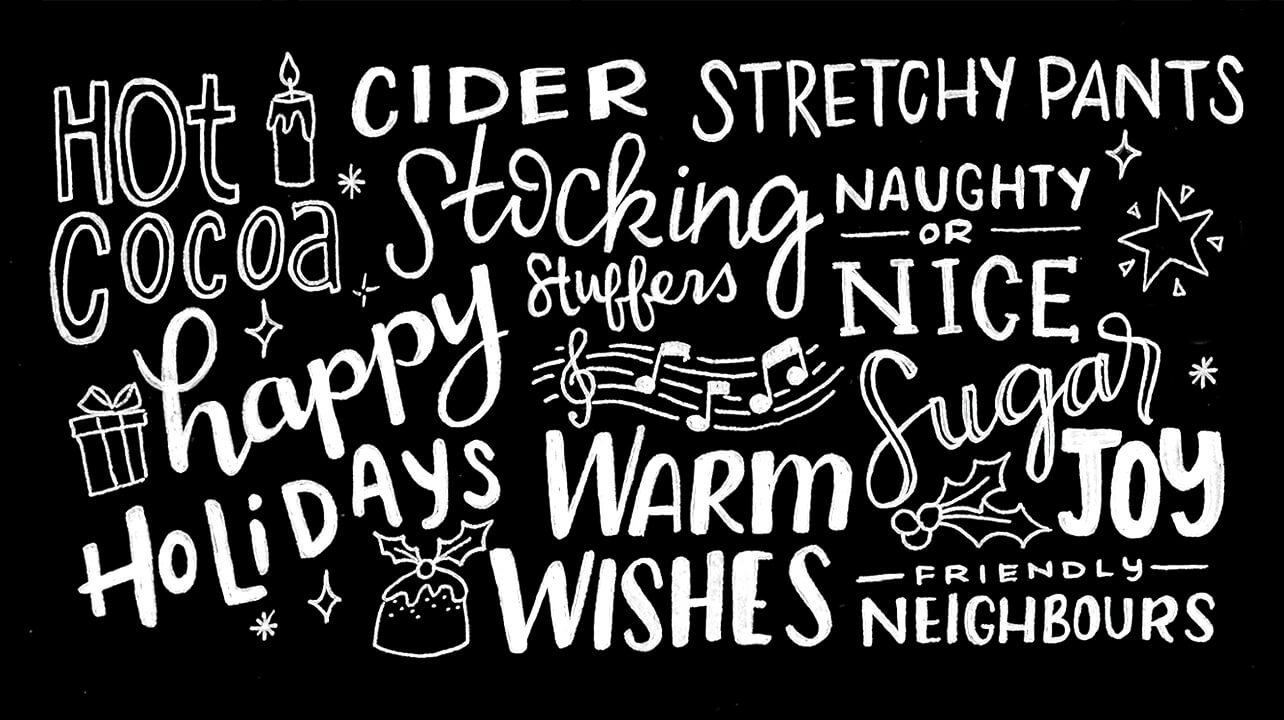 HOt
cocoa
CIDER
STRETCHY PANTS
Stocking
Stuffers
NAUGHTY
OR
NICE
happy
HOLiDAYS
Sugar
JOY
WARm
WISHES
FRIENDLY
NEIGHBOURS